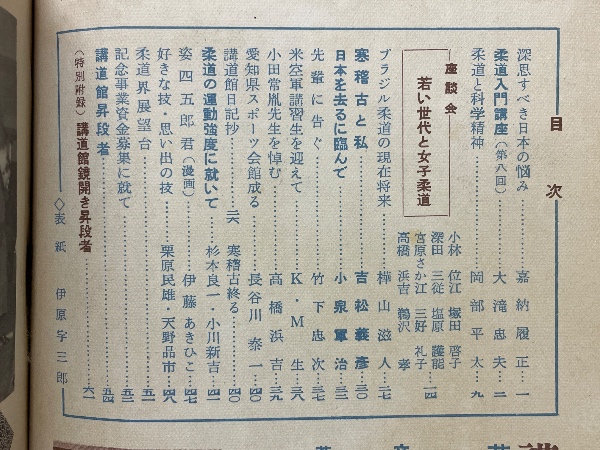 目次
深思すべき日本の悩み…………嘉納履正…一
柔道入門講座(第八回)…………大滝忠夫…二
柔道と科学精神…………岡部平太…九
座談会
若い世代と女子柔道
小林位江 塚田啓子
深田三従 塩原護能
宮原さか江 三好礼子
高橋浜吉 鵜沢孝
…一四
ブラジル柔道の現在将来…………樺山滋人…二七
寒稽古と私…………吉松義彦…三〇
日本を去るに臨んで…………小泉軍治…三三
先輩に告ぐ…………竹下忠次…三七
米空軍講習生を迎えて…………K・M生…三八
小田常胤先生を悼む…………高橋浜吉…三九
愛知県スポーツ会館成る…………長谷川泰一…四〇
講道館日記抄…………三六 寒稽古終る…………四〇
柔道の運動強度に就いて…………杉本良一・小川新吉…四一
姿四五郎君(漫画)…………伊藤あきひこ…四七
好きな技・思い出の技…………栗原民雄・天野品市…四八
柔道界展望台…………五一
記念事業資金募集に就て…………五三
講道館昇段者…………五四
(特別附録)講道館鏡開き昇段者…………六一
◇表紙 伊原宇三郎